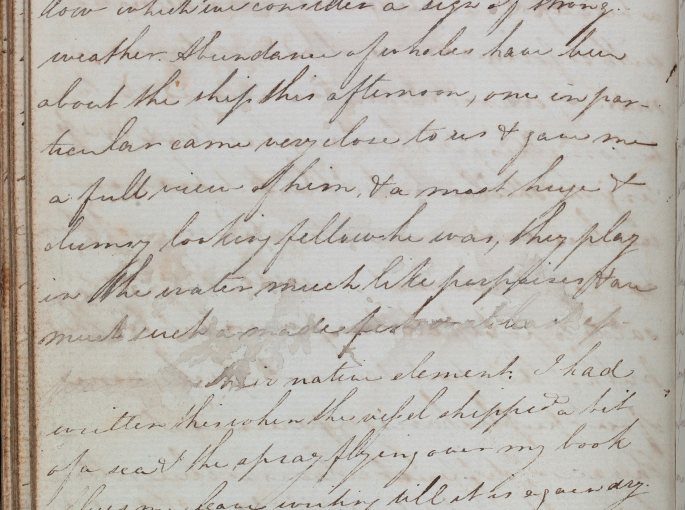 low which we consider a sign of strong
weather. Abundance of whales have been
about the ship this afternoon, one in par-
ticular came very close to us & gave me
a full view of him, & a most huge &
clumsy looking fellow he was, they play
in the water much like porpoises & are
much such a made fish
their native element. I had
written this when the vessel shipped a bit
of a sea & the spray flying over my book
me leave writing till it is again dry.